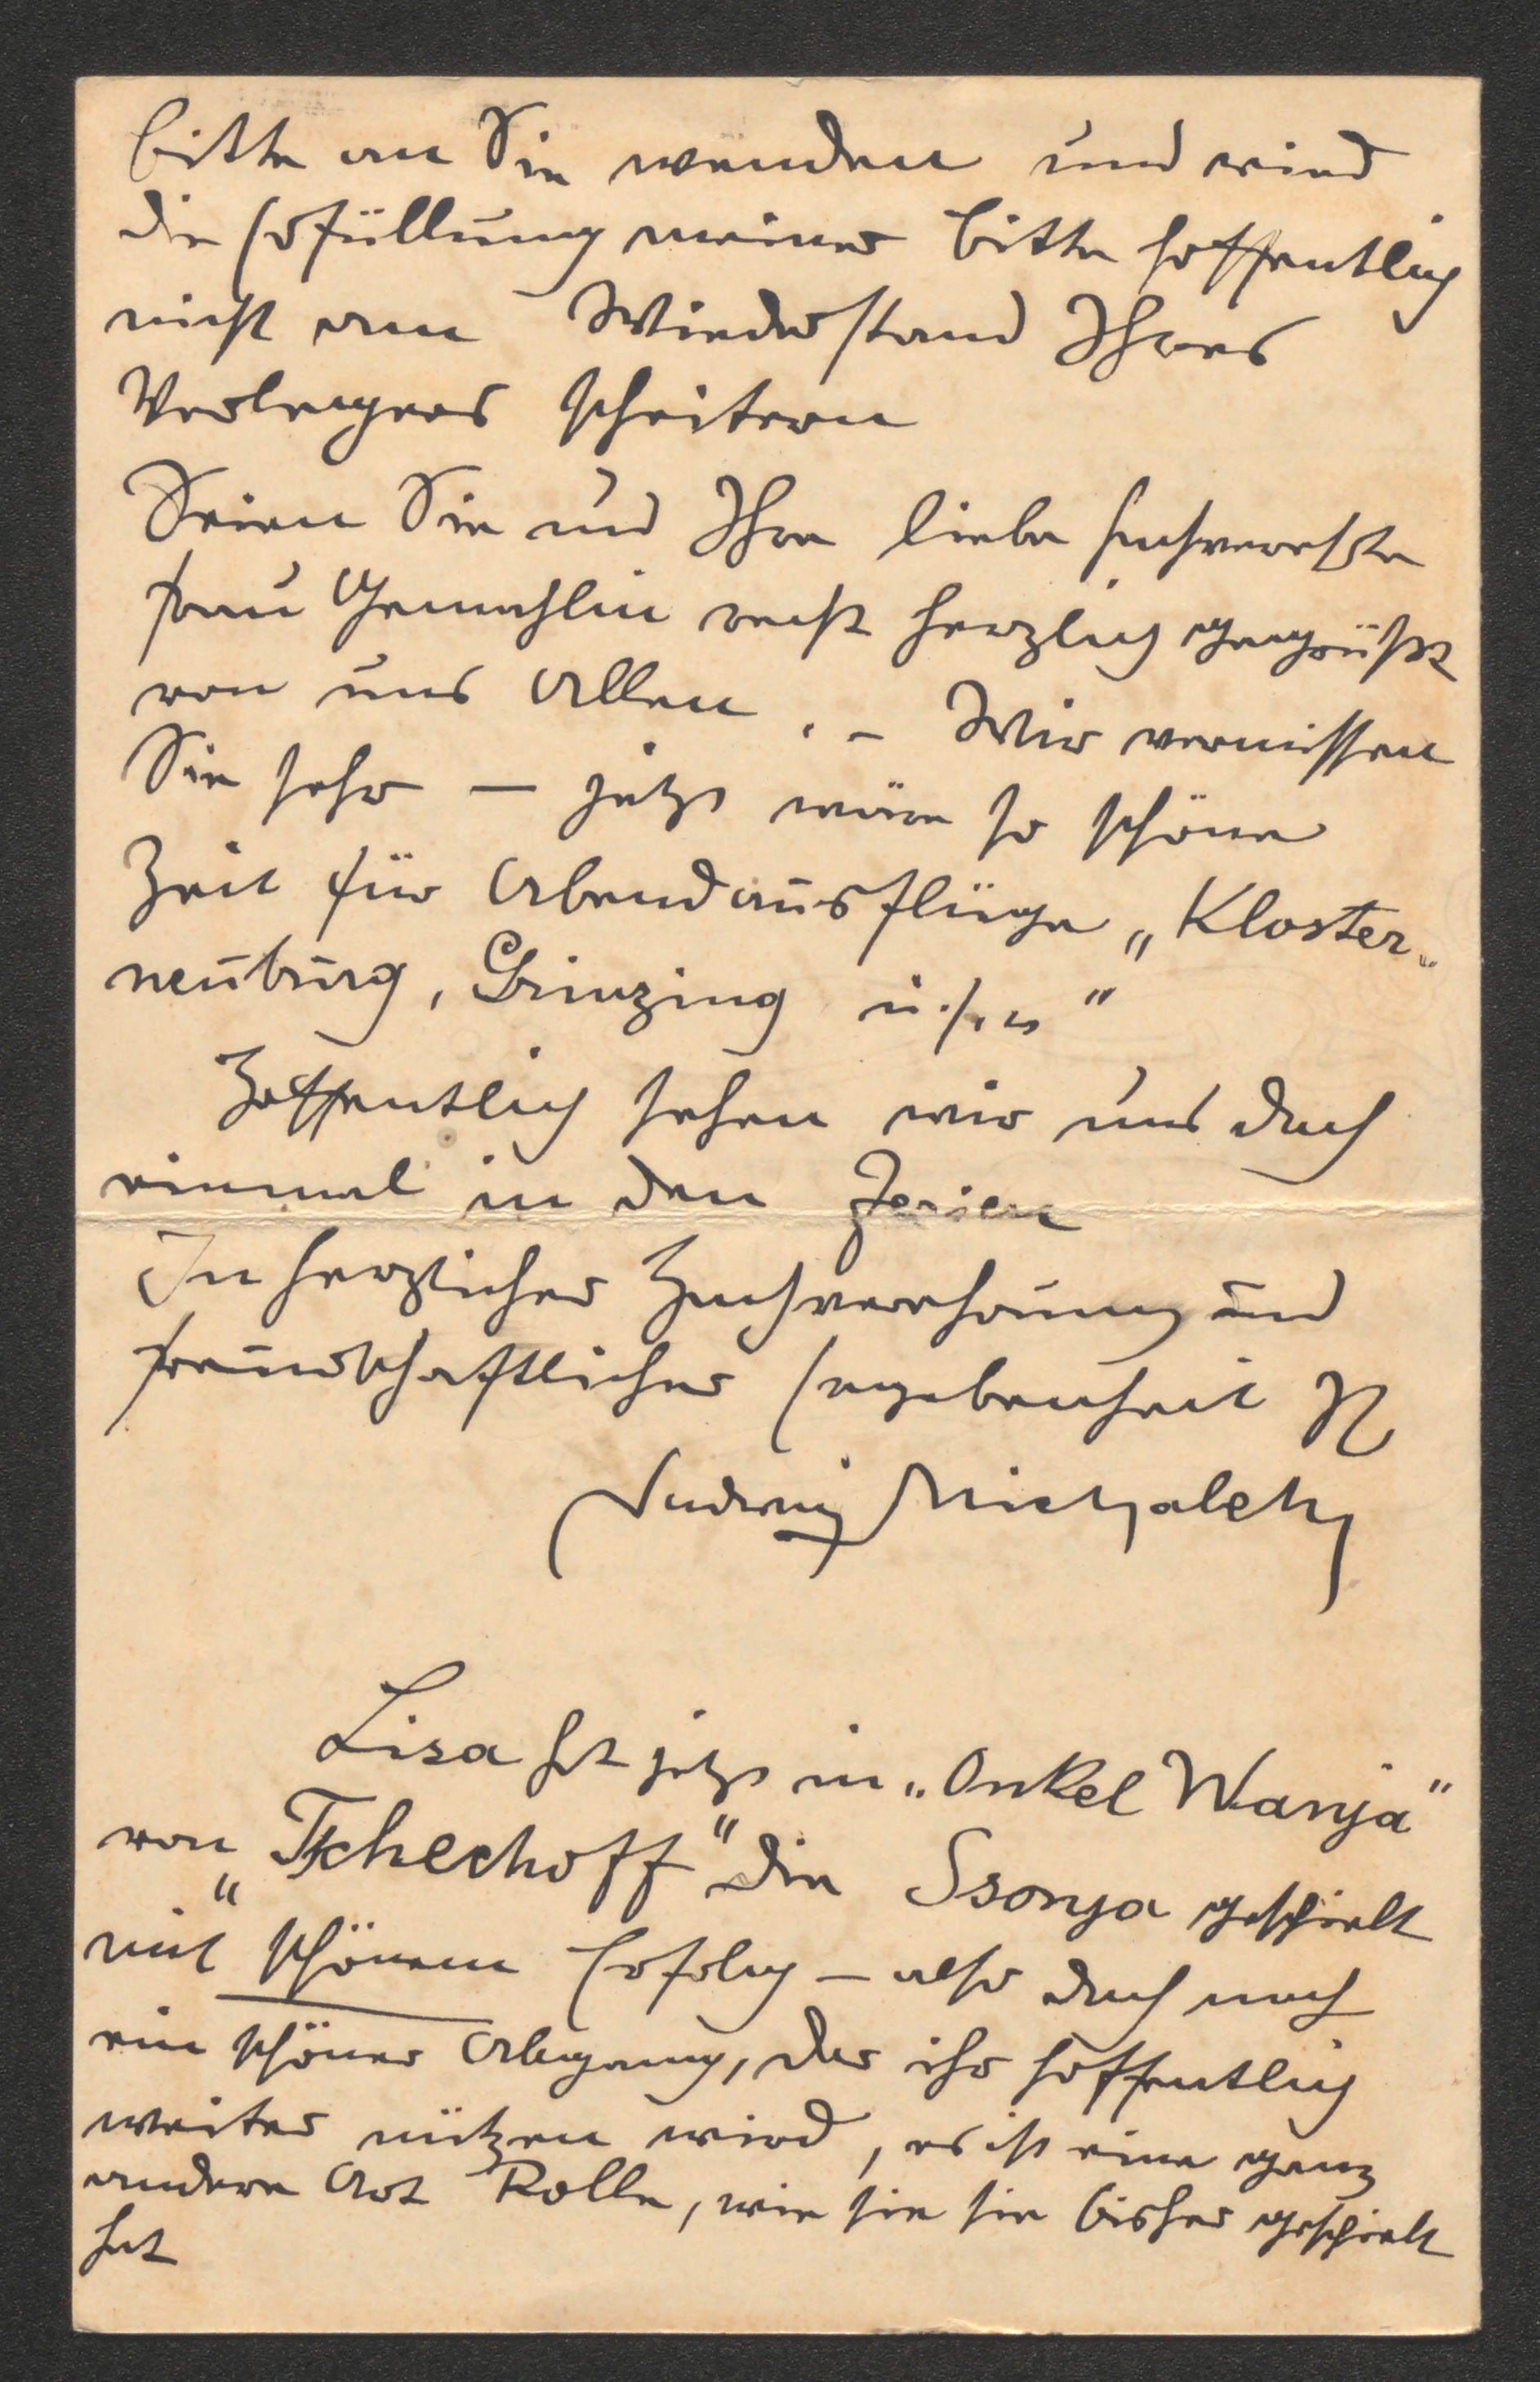 bitte an Sie wenden und wird
die Erfüllung meiner Bitte hoffentlich
nicht am Wiederstand Ihres
Verlegers scheitern
Seien Sie und Ihre liebe hochverehrte
Frau Gemahlin recht herzlich gegrüßt
von uns Allen. – Wir vermissen
Sie sehr – jetzt wäre so schöne
Zeit für Abendausflüge „Kloster„
neuburg, Grinzing u.s.w“
Hoffentlich sehen wir uns doch
einmal in den Ferien
In herzlicher Hochverehrung und
freundschaftlicher Ergebenheit Ihr
Ludwig Michalek
Lisa hat jetzt in „Onkel Wanja“
von „Tschechoff“ die Ssonja gespielt
mit schönem Erfolg – also doch noch
ein schöner Abgang, der ihr hoffentlich
weiter nützen wird, es ist eine ganz
andere Art Rolle, wie sie sie bisher gespielt
hat